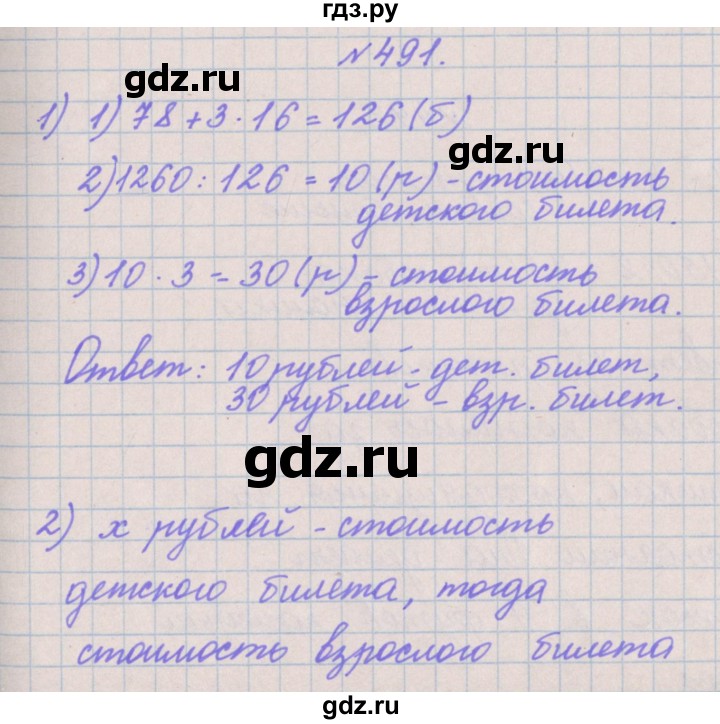 гдз.ру
№491.
gdz.ru
1) 1) 78 + 3 · 16 = 126 (б)
gdz.ru
2) 1260 : 126 = 10 (р) - стоимость
детского билета.
3) 10 · 3 = 30 (р) - стоимость
взрослого билета.
Ответ: 10 рублей - дет. билет,
30 рублей - взр. билет.
gdz.ru
2) x рублей - стоимость
детского билета, тогда
стоимость взрослого билета
gdz.ru